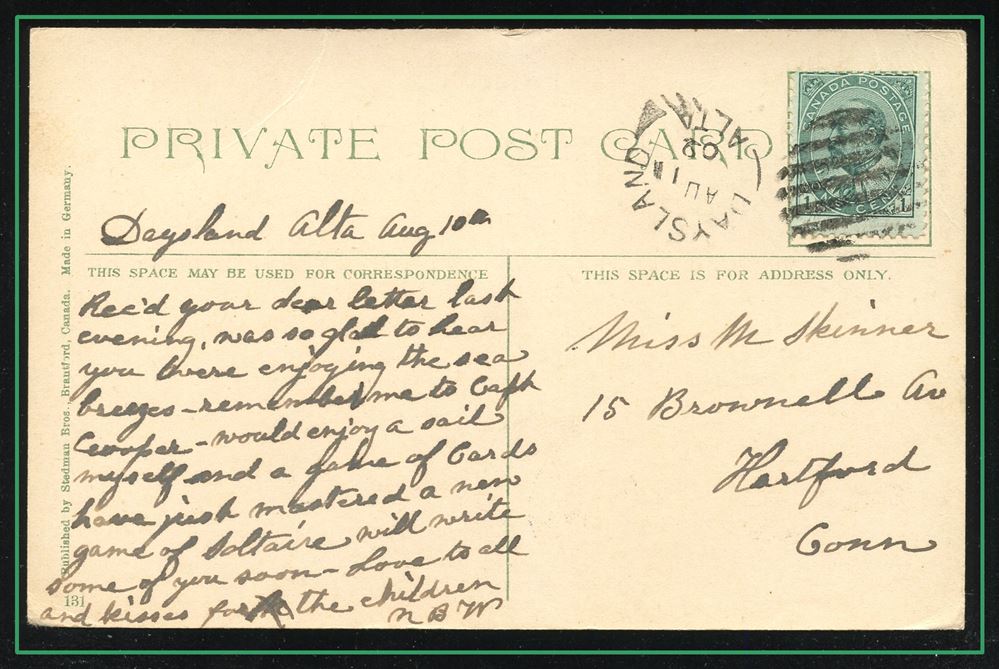 PRIVATE POST CARD
CANADA POSTAGE
1 CENT 1
DAYSLAND ALTA
AU 11
Daysland Alta Aug 10th
THIS SPACE MAY BE USED FOR CORRESPONDENCE
Rec'd your dear letter last
evening, was so glad to hear
you were enjoying the sea
breezes - remember me to Capt
Cooper - would enjoy a sail
myself and a game of Cards
have just mastered a new
game of Soltaire will write
some of you soon - Love to all
and kisses for the children
NBW
THIS SPACE IS FOR ADDRESS ONLY.
Miss M Skinner
15 Brownell Av
Hartford
Conn
Published by Stedman Bros., Brantford, Canada. Made in Germany.
131